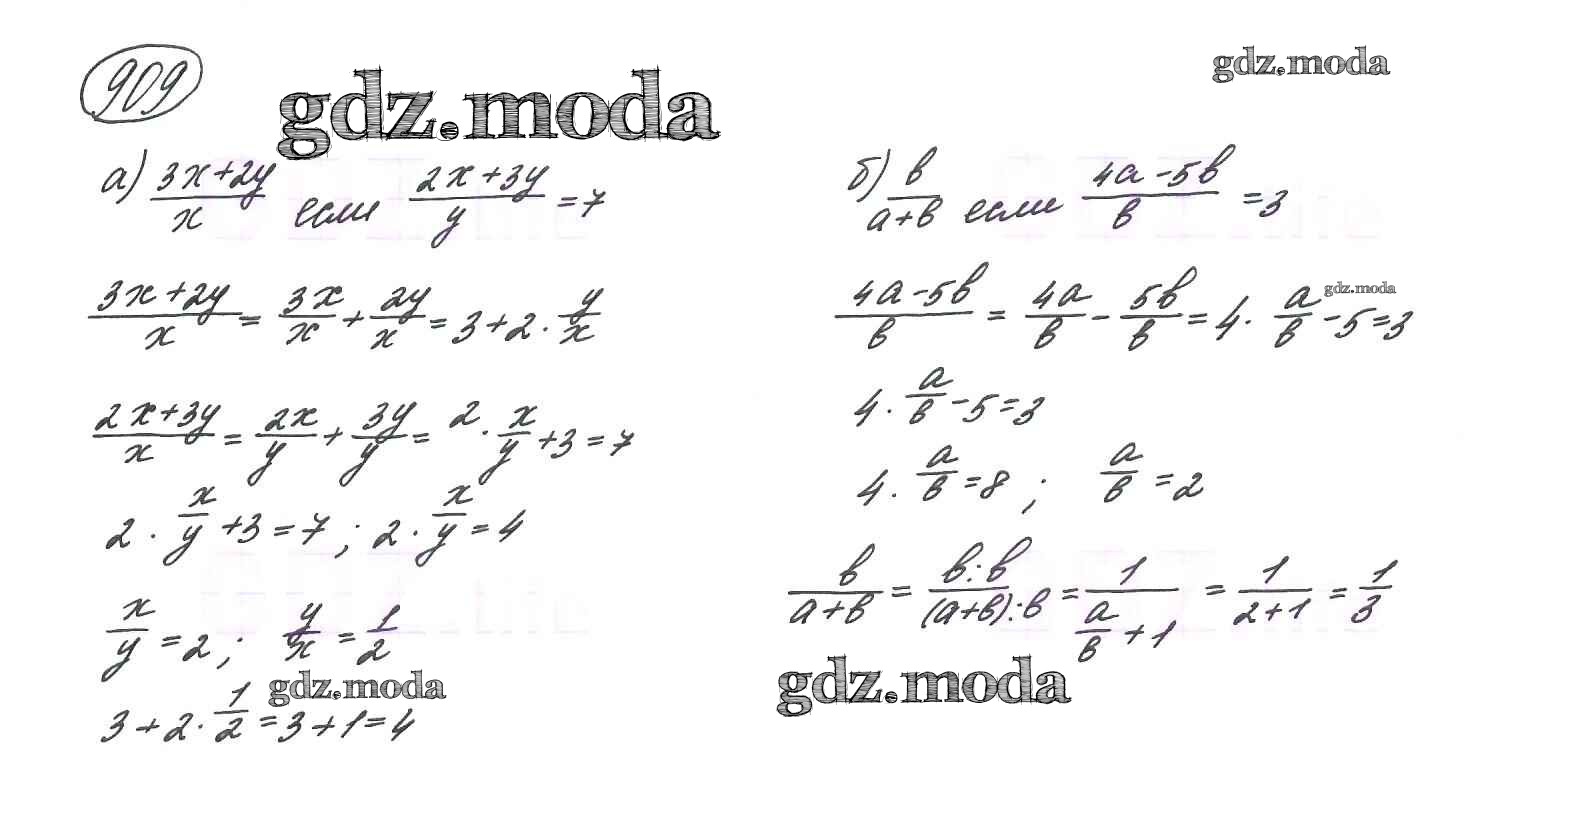 909
gdz.moda
gdz.moda
а) (3x+2y)/x если (2x+3y)/y = 7
(3x+2y)/x = 3x/x + 2y/x = 3+2·y/x
(2x+3y)/x = 2x/y + 3y/y = 2·x/y+3=7
2·x/y+3=7; 2·x/y=4
x/y=2; y/x=1/2
gdz.moda
3+2·1/2=3+1=4
б) в/(а+в) если (4а-5в)/в =3
(4а-5в)/в = 4а/в - 5в/в = 4·а/в-5=3
gdz.moda
4·а/в-5=3
4·а/в=8; а/в=2
в/(а+в) = в:в/(а+в):в = 1/(а/в+1) = 1/(2+1) = 1/3
gdz.moda